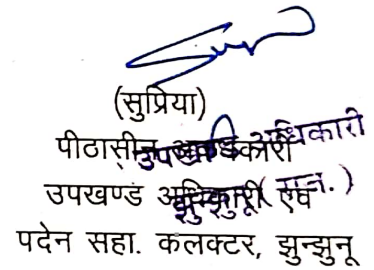 (सुप्रिया)
पीठासीन अधिकारी
उपखण्ड अधिकारी
उपखण्ड अधिकारी एवं
झुन्झुनू (राज.)
पदेन सहा. कलक्टर, झुन्झुनू